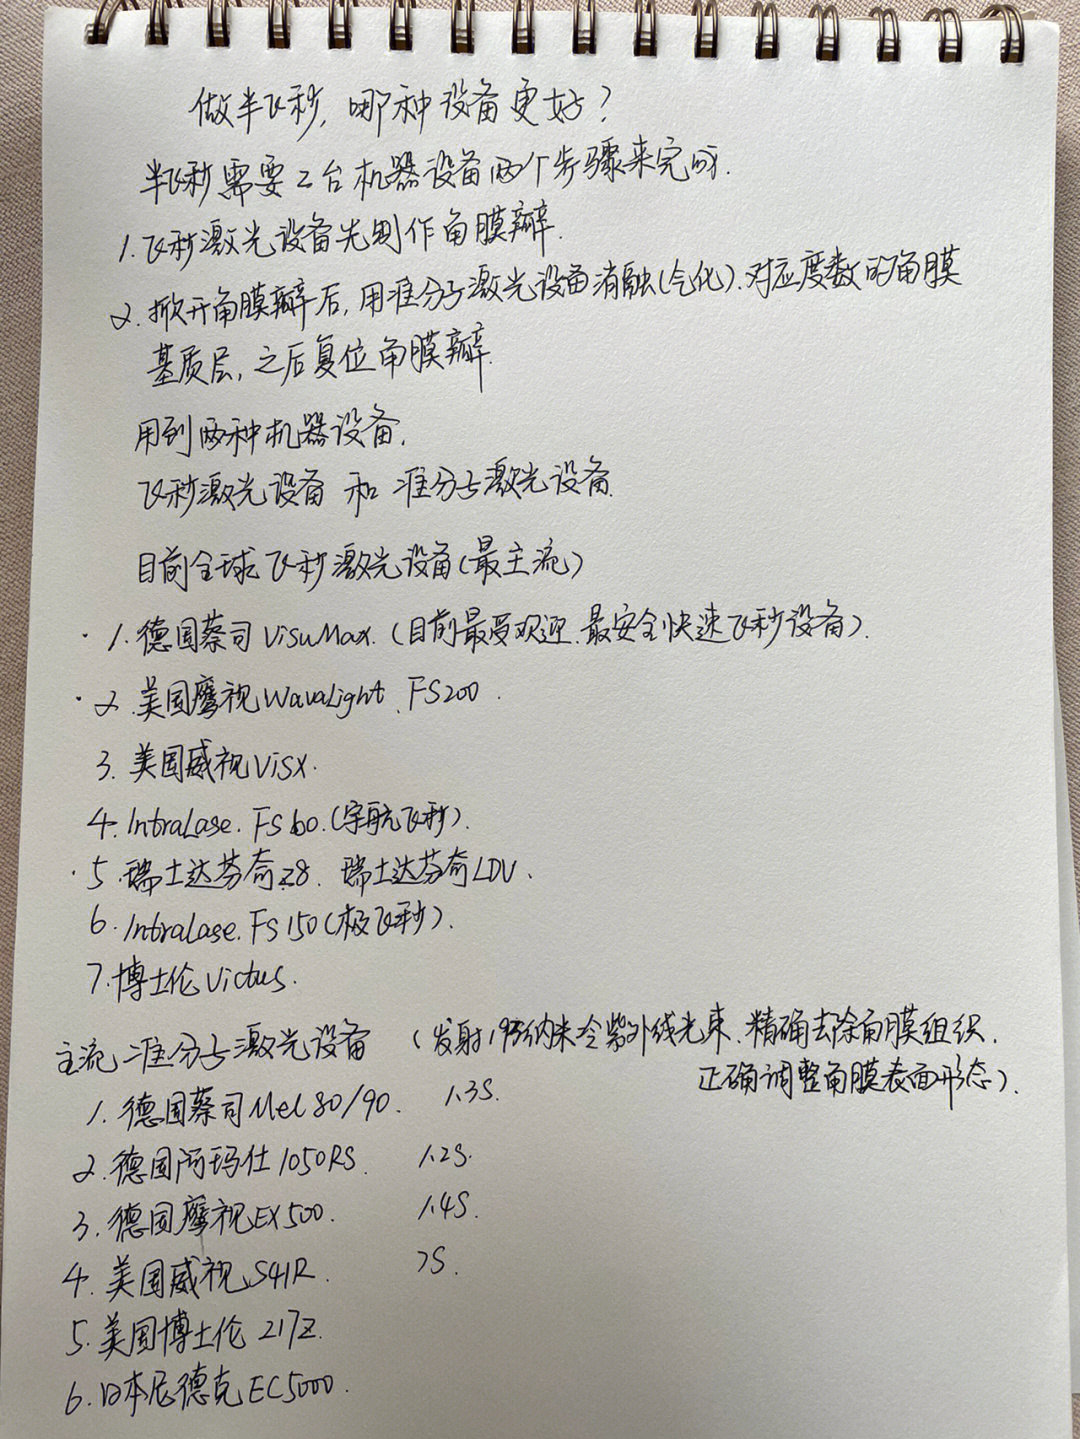 做半飞秒,哪种设备更好?
半飞秒需要2台机器设备两个步骤来完成.
1.飞秒激光设备先制作角膜瓣.
2.掀开角膜瓣后,用准分子激光设备消融(气化).对应度数的角膜
基质层,之后复位角膜瓣.
用到两种机器设备.
飞秒激光设备 和 准分子激光设备.
目前全球飞秒激光设备(最主流)
1.德国蔡司VisuMax.(目前最受欢迎.最安全快速飞秒设备).
2.美国鹰视WavaLight.FS200.
3.美国威视Visx.
4.Intralase.FS60.(宇航飞秒).
5.瑞士达芬奇z8. 瑞士达芬奇LDV.
6.Intralase.Fs150(极飞秒).
7.博士伦Victus.
主流准分子激光设备 (发射193纳米冷紫外线光束.精确去除角膜组织.
正确调整角膜表面形态).
1.德国蔡司Mel80/90. 1.3S.
2.德国阿玛仕1050RS. 1.2S.
3.德国鹰视EX500. 1.4S.
4.美国威视S4IR. 7S.
5.美国博士伦217Z.
6.日本尼德克EC5000.